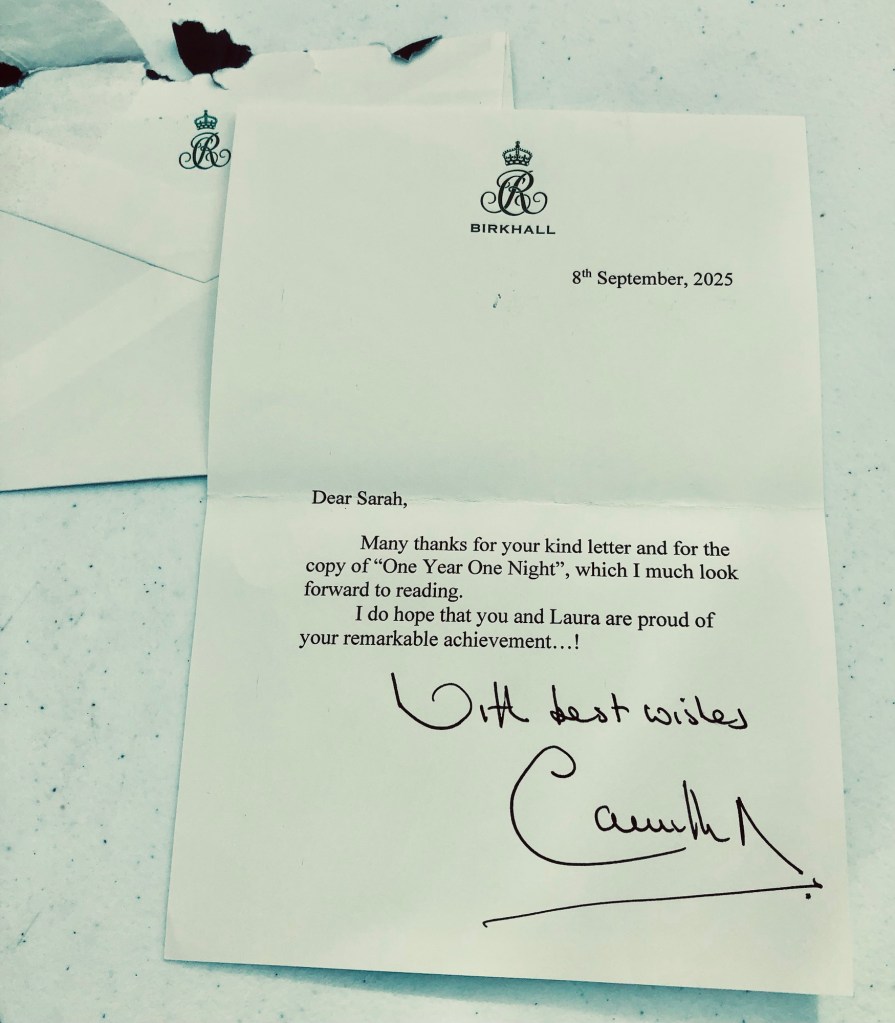 CR
BIRKHALL
8th September, 2025
Dear Sarah,
Many thanks for your kind letter and for the
copy of “One Year One Night”, which I much look
forward to reading.
I do hope that you and Laura are proud of
your remarkable achievement…!
With best wishes
Camilla